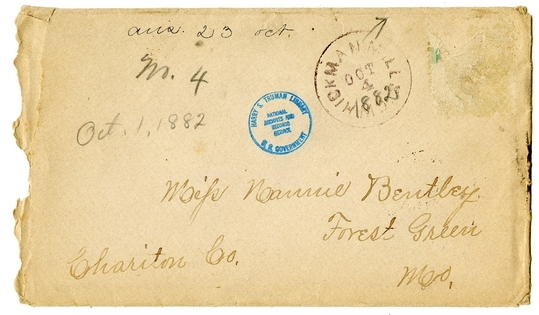 ans. 23 oct.
No. 4
Oct. 1, 1882
HICKMAN MILLS
OCT
4
1882
HARRY S. TRUMAN LIBRARY
NATIONAL
ARCHIVES AND
RECORDS
SERVICE
U. S. GOVERNMENT
Miss Nannie Bentley.
Forest Green
Chariton Co.
Mo.